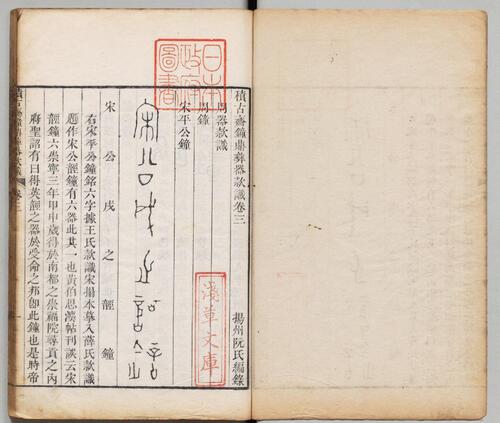 積古齋鐘鼎彝器款識卷三
揚州阮氏編錄
周器款識
周鐘
宋平公鐘
日本
政府
圖書
淺草文庫
宋公戌之鐘
右宋平公鐘銘六字據王氏款識宋搨本摹入薛氏款識
題作宋公鐘有六器此其一也黃伯思帖刊誤云宋
鐘六崇寧三年甲申歲得於南都之崇福院尋貢之內
府聖詔有曰得英之器於受命之邦卽此鐘也是時帝
積古齋鐘鼎彝器款識 卷三